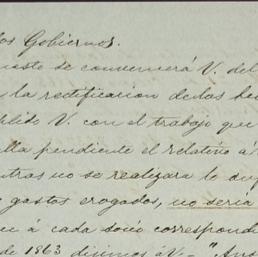 los Gobiernos.
este de convencerá V. del
la rectificacion de las
V. con el trabajo que
pendiente el relativo á
tras no se realizara lo
gastos erogados, no seria
á cada socio correspondi
de 1863 dijimos á V.